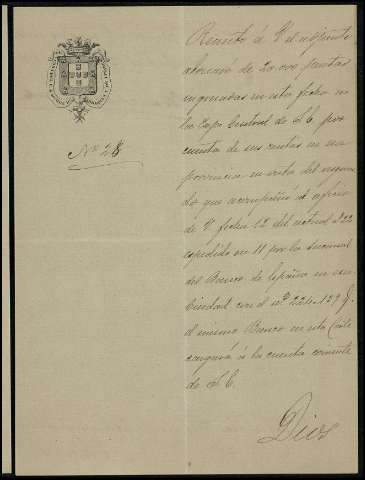 Nº 28
Remito á V. el adjunto
abonaré de 20.000 pesetas
ingresadas en esta fecha en
la Caja Central de S. E. por
cuenta de sus rentas en esa
provincia en vista del resguar
do que acompañó al oficio
de V. fecha 12 del actual
expedido en 11 por la Sucursal
del Banco de España en esa
Ciudad con el nº
el mismo Banco en esta Corte
cargará á la cuenta corriente
de S. E.
Dios